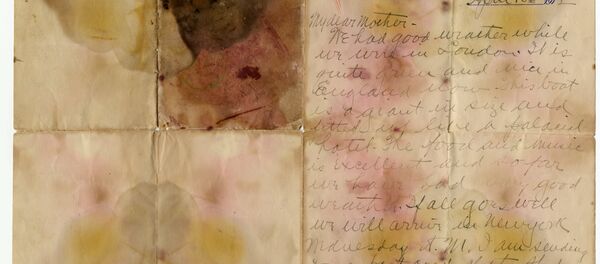 My dear Mother-
We had good weather while
we were in London. It is
quite green and nice in
England now. This boat
is a giant in size and
fitted up like a palacial
hotel. The food and music
is excellent and so far
we have had very good
weather. If all goes well
we will arrive in New York
Wednesday A.M. I am sending